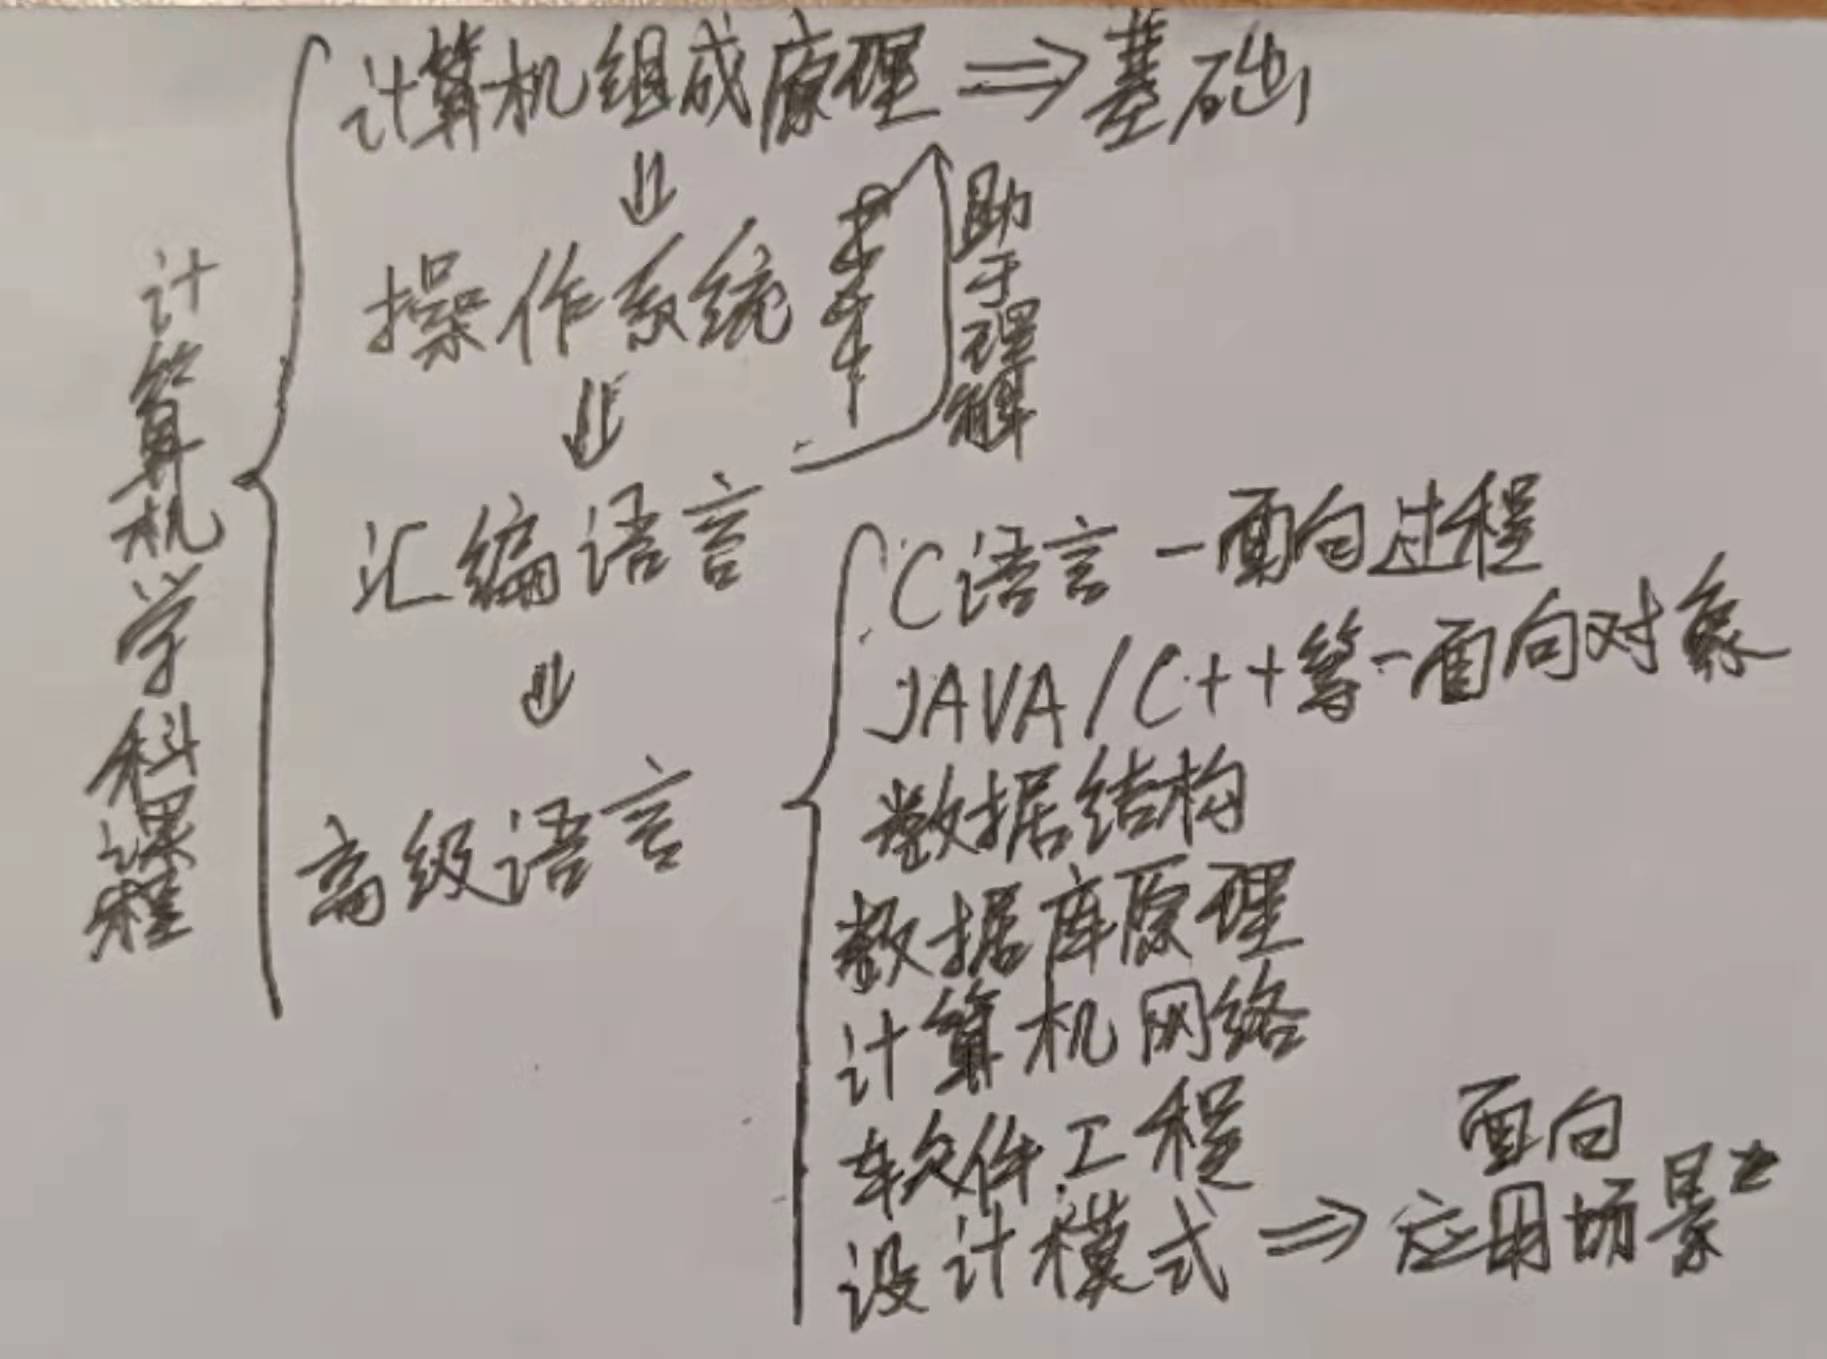 计算机学科课程
计算机组成原理 ⇒ 基础
助于理解
操作系统
汇编语言
高级语言
C语言 - 面向过程
JAVA / C++等 - 面向对象
数据结构
数据库原理
计算机网络
软件工程
设计模式 ⇒ 面向
应用场景